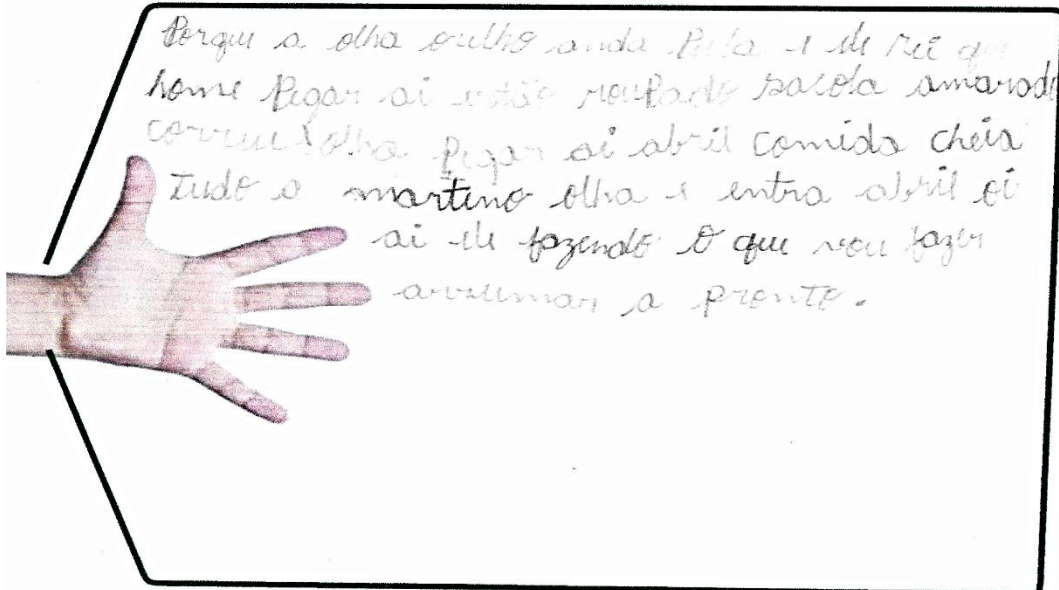 Porque a olha orelho anda Pula e ele rei que
home Pegar ai estão roupado sacola amarado
correu olha pegar ai abril comida cheia
tudo a martino olha e entra abril oi
ai ele fazendo o que vou fazer
arrumar a pronto.